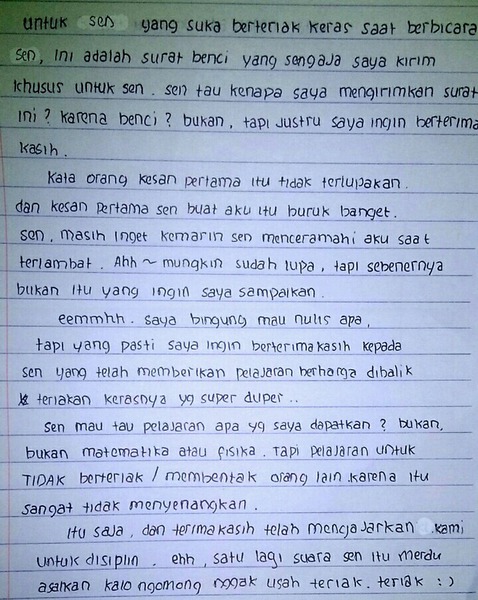 untuk sen yang suka berteriak keras saat berbicara
sen, ini adalah surat benci yang sengaja saya kirim
khusus untuk sen. sen tau kenapa saya mengirimkan surat
ini? karena benci? bukan, tapi justru saya ingin berterima
kasih.
Kata orang kesan pertama itu tidak terlupakan.
dan kesan pertama sen buat aku itu buruk banget.
sen, masih inget kemarin sen menceramahi aku saat
terlambat. Ahh ~ mungkin sudah lupa, tapi sebenernya
bukan itu yang ingin saya sampaikan.
eemmhh. saya bingung mau nulis apa,
tapi yang pasti saya ingin berterimakasih kepada
sen yang telah memberikan pelajaran berharga dibalik
teriakan kerasnya yg super duper..
sen mau tau pelajaran apa yg saya dapatkan? bukan,
bukan matematika atau fisika. Tapi pelajaran untuk
TIDAK berteriak / membentak orang lain.karena itu
sangat tidak menyenangkan.
itu saja, dan terimakasih telah mengajarkan kami
untuk disiplin. ehh, satu lagi suara sen itu merdu
asalkan kalo ngomong nggak usah teriak.teriak :)